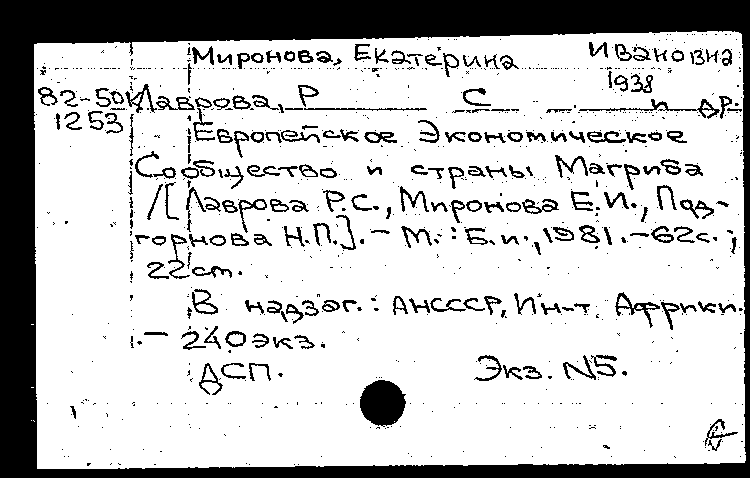 Миронова, Екатерина Ивановна
1938
82-50к Лаврова, Р С и др.
1253
Европейское Экономическое
Сообщество и страны Магриба
/[Лаврова Р.С., Миронова Е.И., Под-
горнова Н.П.]. - М. : Б.и., 1981. - 62с. ;
22см.
В надзаг.: АНСССР, Ин-т Африки.
- 240экз.
ДСП. Экз. N5.